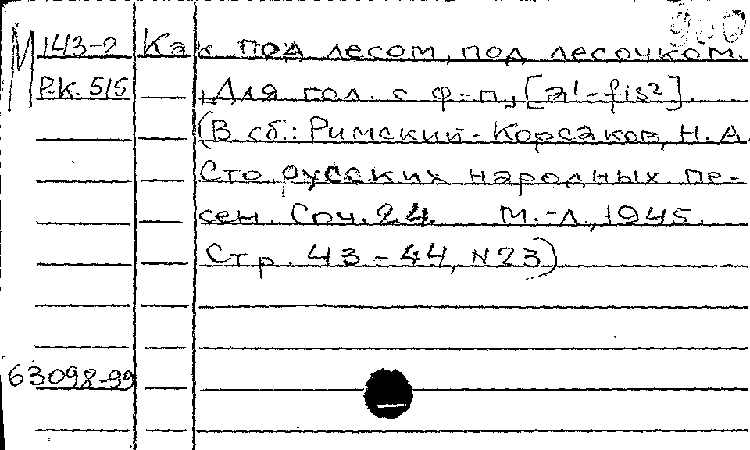 900
М 143-2 Как под лесом, под лесочком.
Р.К. 515 Для гол. с ф-п, [a¹-fis²].
(В сб.: Римский-Корсаков, Н.А.
Сто русских народных пе-
сен. Соч. 24. М.-Л, 1945.
Стр. 43-44, N23)
63098-99